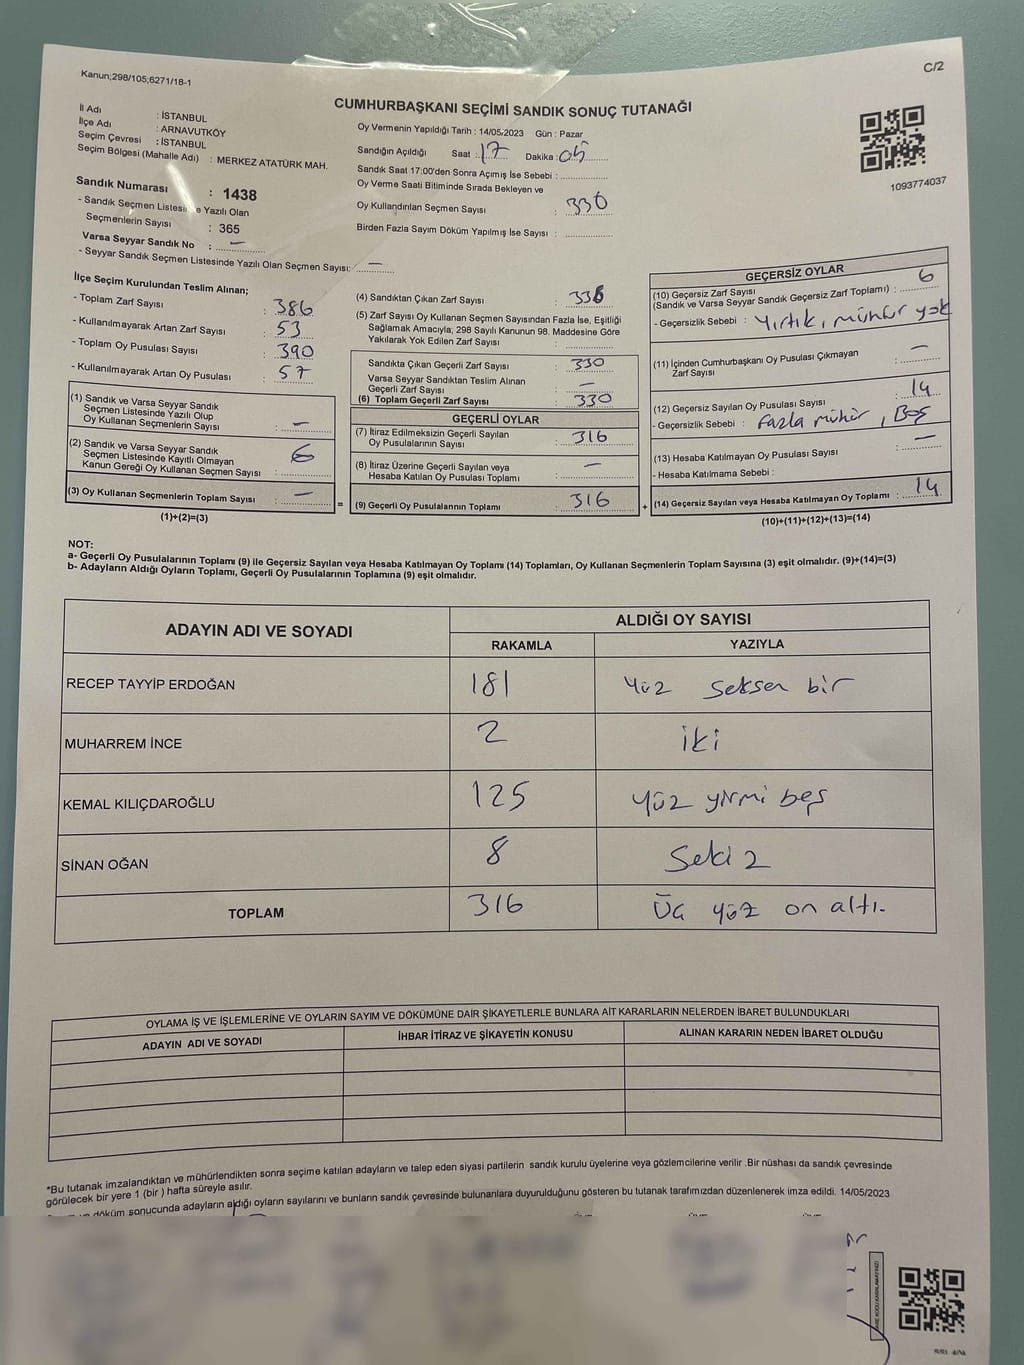 Kanun;298/105;6271/18-1
C/2
CUMHURBAŞKANI SEÇİMİ SANDIK SONUÇ TUTANAĞI
İl Adı : İSTANBUL
İlçe Adı : ARNAVUTKÖY
Seçim Çevresi : İSTANBUL
Seçim Bölgesi (Mahalle Adı) : MERKEZ ATATÜRK MAH.
Oy Vermenin Yapıldığı Tarih : 14/05/2023 Gün : Pazar
Sandığın Açıldığı Saat : 17 Dakika : 05
Sandık Saat 17:00'den Sonra Açımış İse Sebebi :
Oy Verme Saati Bitiminde Sırada Bekleyen ve
Oy Kullandırılan Seçmen Sayısı : 336
Birden Fazla Sayım Döküm Yapılmış İse Sayısı :
1093774037
Sandık Numarası : 1438
- Sandık Seçmen Listesi Yazılı Olan
Seçmenlerin Sayısı : 365
Varsa Seyyar Sandık No : –
- Seyyar Sandık Seçmen Listesinde Yazılı Olan Seçmen Sayısı: –
İlçe Seçim Kurulundan Teslim Alınan;
- Toplam Zarf Sayısı : 386
- Kullanılmayarak Artan Zarf Sayısı : 53
- Toplam Oy Pusulası Sayısı : 390
- Kullanılmayarak Artan Oy Pusulası : 57
(1) Sandık ve Varsa Seyyar Sandık
Seçmen Listesinde Yazılı Olup
Oy Kullanan Seçmenlerin Sayısı : –
(2) Sandık ve Varsa Seyyar Sandık
Seçmen Listesinde Kayıtlı Olmayan
Kanun Gereği Oy Kullanan Seçmen Sayısı : 6
(3) Oy Kullanan Seçmenlerin Toplam Sayısı : –
(1)+(2)=(3)
(4) Sandıktan Çıkan Zarf Sayısı : 336
(5) Zarf Sayısı Oy Kullanan Seçmen Sayısından Fazla İse, Eşitliği
Sağlamak Amacıyla; 298 Sayılı Kanunun 98. Maddesine Göre
Yakılarak Yok Edilen Zarf Sayısı :
Sandıkta Çıkan Geçerli Zarf Sayısı : 330
Varsa Seyyar Sandıktan Teslim Alınan
Geçerli Zarf Sayısı : –
(6) Toplam Geçerli Zarf Sayısı : 330
GEÇERLİ OYLAR
(7) İtiraz Edilmeksizin Geçerli Sayılan
Oy Pusulalarının Sayısı : 316
(8) İtiraz Üzerine Geçerli Sayılan veya
Hesaba Katılan Oy Pusulası Toplamı : –
= (9) Geçerli Oy Pusulalarının Toplamı : 316
GEÇERSİZ OYLAR
(10) Geçersiz Zarf Sayısı
(Sandık ve Varsa Seyyar Sandık Geçersiz Zarf Toplamı) : 6
- Geçersizlik Sebebi : Yırtık, mühür yok
(11) İçinden Cumhurbaşkanı Oy Pusulası Çıkmayan
Zarf Sayısı : –
(12) Geçersiz Sayılan Oy Pusulası Sayısı : 14
- Geçersizlik Sebebi : Fazla mühür, Boş
(13) Hesaba Katılmayan Oy Pusulası Sayısı : –
- Hesaba Katılmama Sebebi :
+ (14) Geçersiz Sayılan veya Hesaba Katılmayan Oy Toplamı : 14
(10)+(11)+(12)+(13)=(14)
NOT:
a- Geçerli Oy Pusulalarının Toplamı (9) ile Geçersiz Sayılan veya Hesaba Katılmayan Oy Toplamı (14) Toplamları, Oy Kullanan Seçmenlerin Toplam Sayısına (3) eşit olmalıdır. (9)+(14)=(3)
b- Adayların Aldığı Oyların Toplamı, Geçerli Oy Pusulalarının Toplamına (9) eşit olmalıdır.
ADAYIN ADI VE SOYADI
ALDIĞI OY SAYISI
RAKAMLA YAZIYLA
RECEP TAYYİP ERDOĞAN 181 Yüz seksen bir
MUHARREM İNCE 2 iki
KEMAL KILIÇDAROĞLU 125 yüz yirmi beş
SİNAN OĞAN 8 Sekiz
TOPLAM 316 Üç yüz on altı.
OYLAMA İŞ VE İŞLEMLERİNE VE OYLARIN SAYIM VE DÖKÜMÜNE DAİR ŞİKAYETLERLE BUNLARA AİT KARARLARIN NELERDEN İBARET BULUNDUKLARI
ADAYIN ADI VE SOYADI İHBAR İTİRAZ VE ŞİKAYETİN KONUSU ALINAN KARARIN NEDEN İBARET OLDUĞU
*Bu tutanak imzalandıktan ve mühürlendikten sonra seçime katılan adayların ve talep eden siyasi partilerin sandık kurulu üyelerine veya gözlemcilerine verilir .Bir nüshası da sandık çevresinde
görülecek bir yere 1 (bir ) hafta süreyle asılır.
döküm sonucunda adayların aldığı oyların sayılarını ve bunların sandık çevresinde bulunanlara duyurulduğunu gösteren bu tutanak tarafımızdan düzenlenerek imza edildi. 14/05/2023